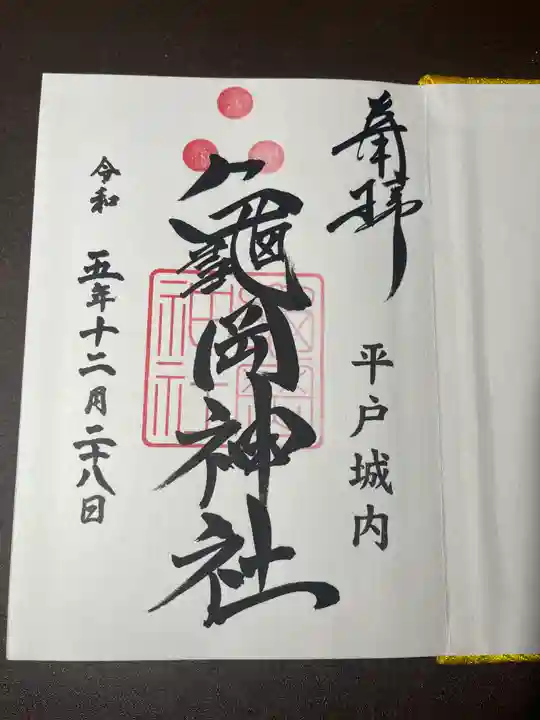 奉拝
平戸城内
龜岡神社
令和 五年十二月二十八日